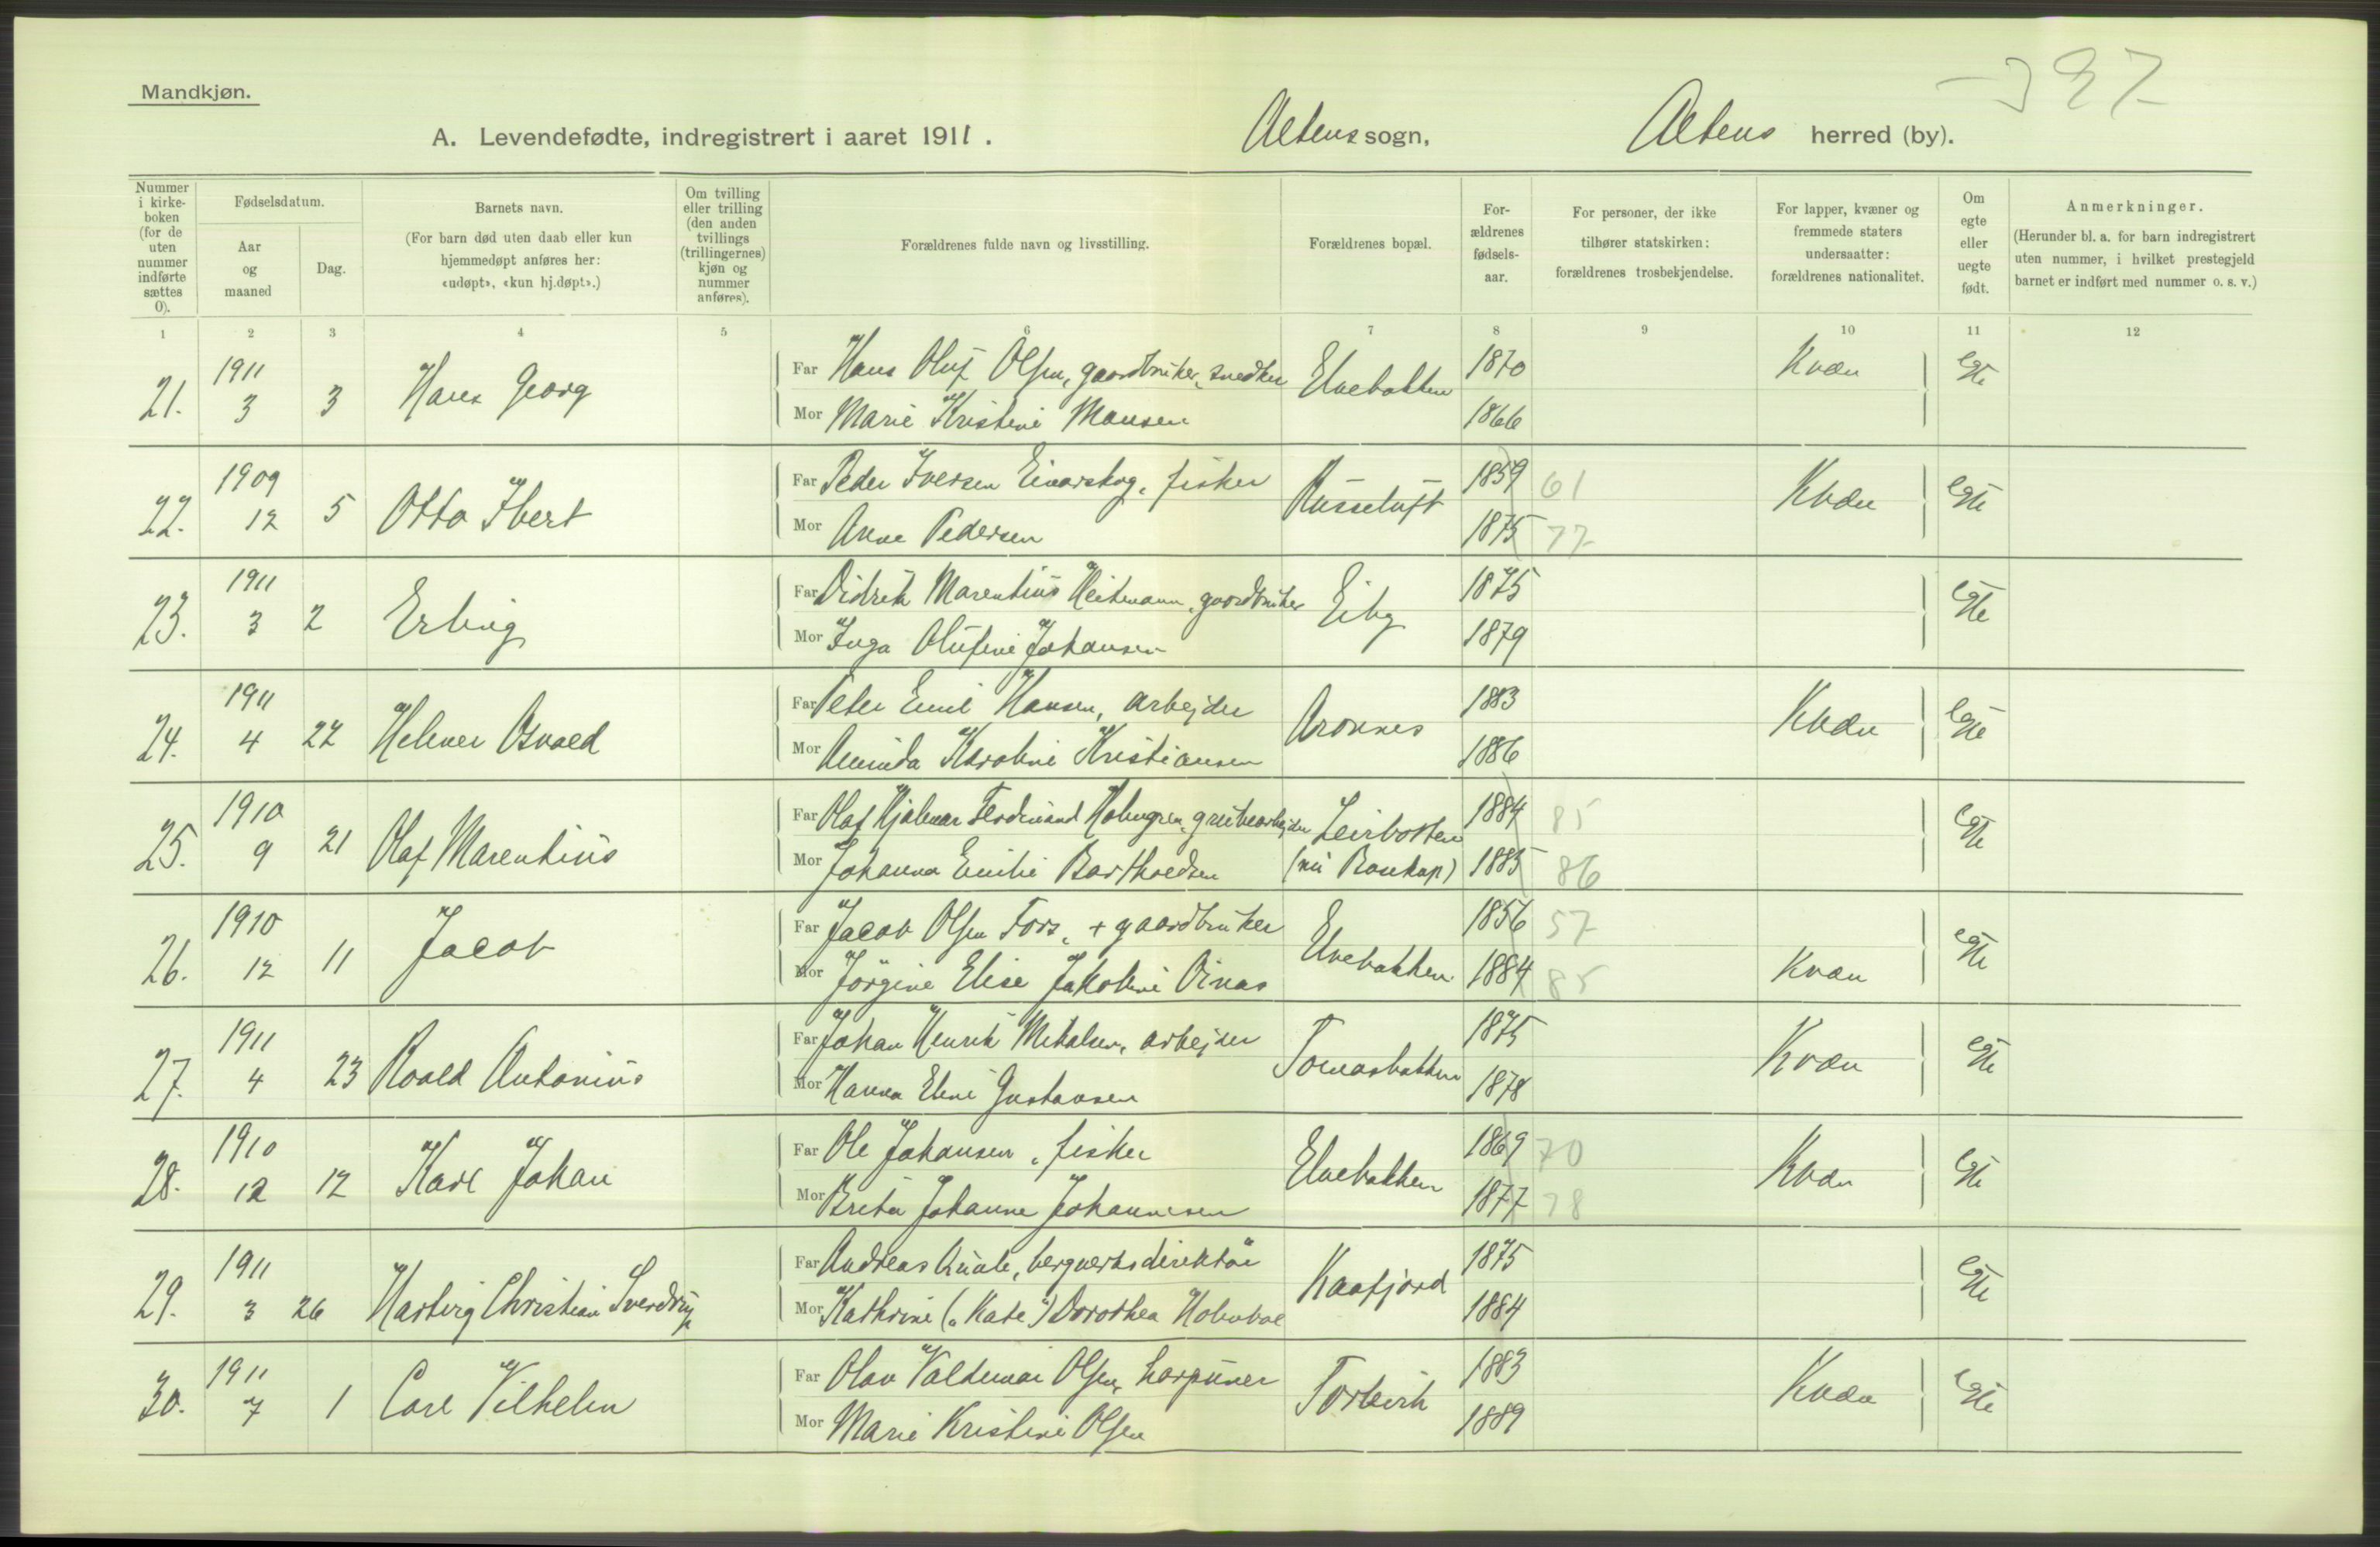 397
Mandkjøn.
A. Levendefødte, indregistrert i aaret 1911. Altens sogn, Altens herred (by).
Nummer i kirke-boken (for de uten nummer indførte sættes 0). | Fødselsdatum. Aar og maaned | Dag. | Barnets navn. (For barn død uten daab eller kun hjemmedøpt anføres her: «udøpt», «kun hj.døpt».) | Om tvilling eller trilling (den anden tvillings (trillingernes) kjøn og nummer anføres). | Forældrenes fulde navn og livsstilling. | Forældrenes bopæl. | For-ældrenes fødsels-aar. | For personer, der ikke tilhører statskirken: forældrenes trosbekjendelse. | For lapper, kvæner og fremmede staters undersaatter: forældrenes nationalitet. | Om egte eller uegte født. | Anmerkninger. (Herunder bl. a. for barn indregistrert uten nummer, i hvilket prestegjeld barnet er indført med nummer o. s. v.)
1 2 3 4 5 6 7 8 9 10 11 12
21. 1911 3 3 Hans Georg Far Hans Oluf Olsen, gaardbruker, snedker Elvebakken 1870 Kvæn egte
Mor Marie Kristine Hansen 1866
22. 1909 12 5 Otto Ibert Far Peder Iversen Einarskog, fisker Russeluft 1859 61 Kvæn egte
Mor Anne Pedersen 1875 77
23. 1911 3 2 Erling Far Didrik Marentius Heitmann, gaardbruker Eiby 1875 egte
Mor Inga Olufine Johansen 1879
24. 1911 4 22 Helmer Osvald Far Peter Emil Hansen, arbejder Aronnes 1883 Kvæn egte
Mor Karoline Kristiansen 1886
25. 1910 9 21 Olaf Marentius Far Olaf Hjalmar Ferdinand Holmgren, grubearbejder Leirbotten 1884 85 egte
Mor Johanna Emilie Bartholdsen (nu Bosekop) 1885 86
26. 1910 12 11 Jacob Far Jacob Olsen Fors, + gaardbruker Elvebakken 1856 57 egte
Mor Jörgine Elise Jakobine Oinas 1884 85 Kvæn
27. 1911 4 23 Roald Antonius Far Johan Henrik Mikalsen, arbejder Tomasbakken 1875 Kvæn egte
Mor Hanna Eline Gustavsen 1878
28. 1910 12 12 Karl Johan Far Ole Johansen, fisker Elvebakken 1869 70 Kvæn egte
Mor Brita Johanne Johannesen 1877 78
29. 1911 3 26 Hartvig Christian Sverdrup Far Andreas Quale, bergverksdirektör Kaafjord 1875 egte
Mor Kathrine („Kate") Dorothea Holmboe 1884
30. 1911 7 1 Carl Vilhelm Far Olav Valdemar Olsen, harpuner Talvik 1883 Kvæn egte
Mor Marie Kristine Olsen 1889